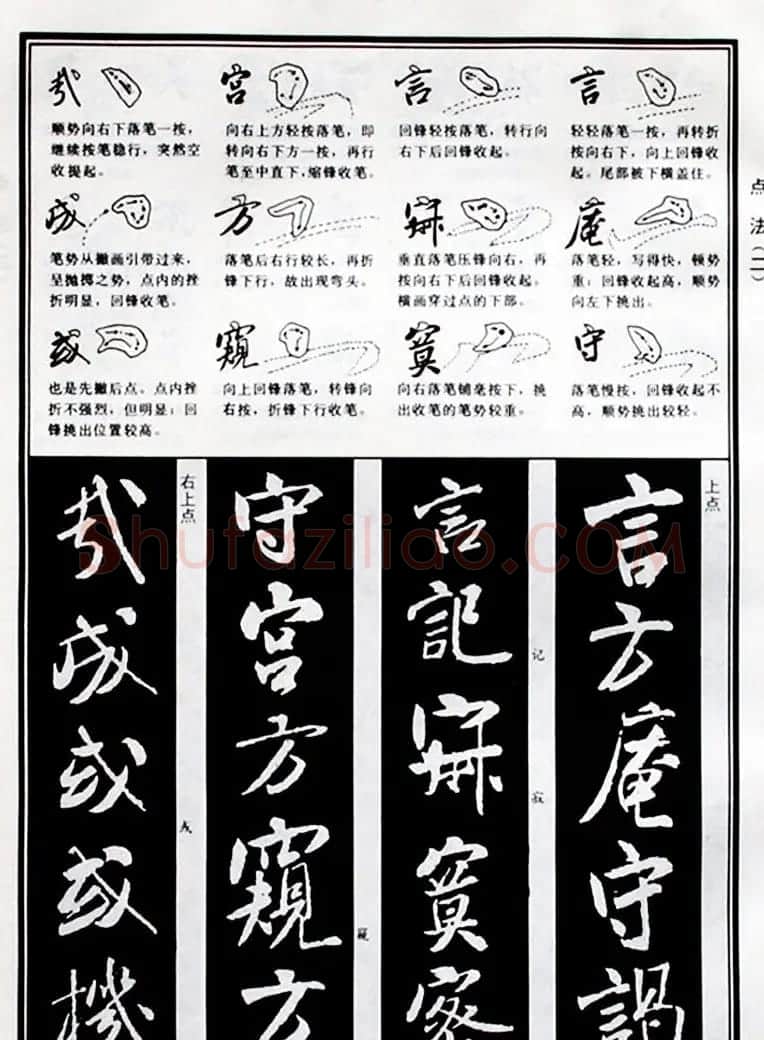 点法(二)
言
轻轻落笔一按，再转折
按向右下，向上回锋收
起。尾部被下横盖住。
庵
落笔轻，写得快，顿势
重；回锋收起高，顺势
向左下挑出。
守
落笔慢按，回锋收起不
高，顺势挑出较轻。
言
回锋轻按落笔，转行向
右下后回锋收起。
寂
垂直落笔压锋向右，再
按向右下后回锋收起。
横画穿过点的下部。
賓
向右落笔铺毫按下，挑
出收笔的笔势较重。
宫
向右上方轻按落笔，即
转向右下方一按，再行
笔至中直下，缩锋收笔。
方
落笔后右行较长，再折
锋下行，故出现弯头。
窺
向上回锋落笔，转锋向
右按，折锋下行收笔。
顺势向右下落笔一按，
继续按笔稳行，突然空
收提起。
成
笔势从撇画引带过来，
呈抛掷之势，点内的挫
折明显，回锋收笔。
或
也是先撇后点。点内挫
折不强烈，但明显；回
锋挑出位置较高。
上点
言方庵守謁
记
寂
言記寂賓密
窥
守宫方窺方
右上点
成或或機
Shufaziliao.COM